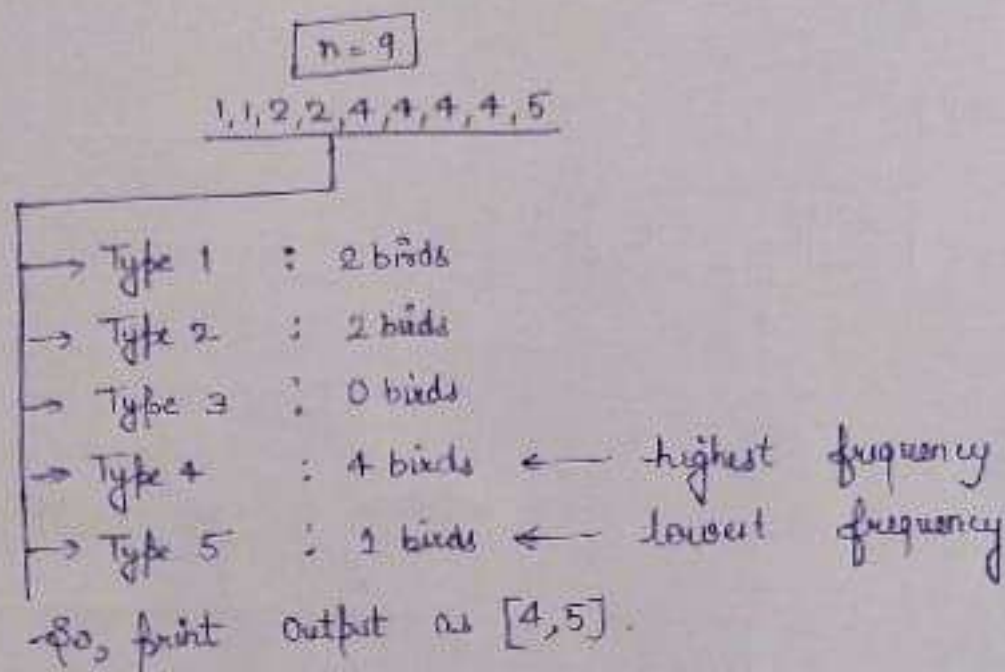 n = 9
1,1,2,2,4,4,4,4,5
→ Type 1 : 2 birds
→ Type 2 : 2 birds
→ Type 3 : 0 birds
→ Type 4 : 4 birds ← highest frequency
→ Type 5 : 1 birds ← lowest frequency
So, print output as [4,5].